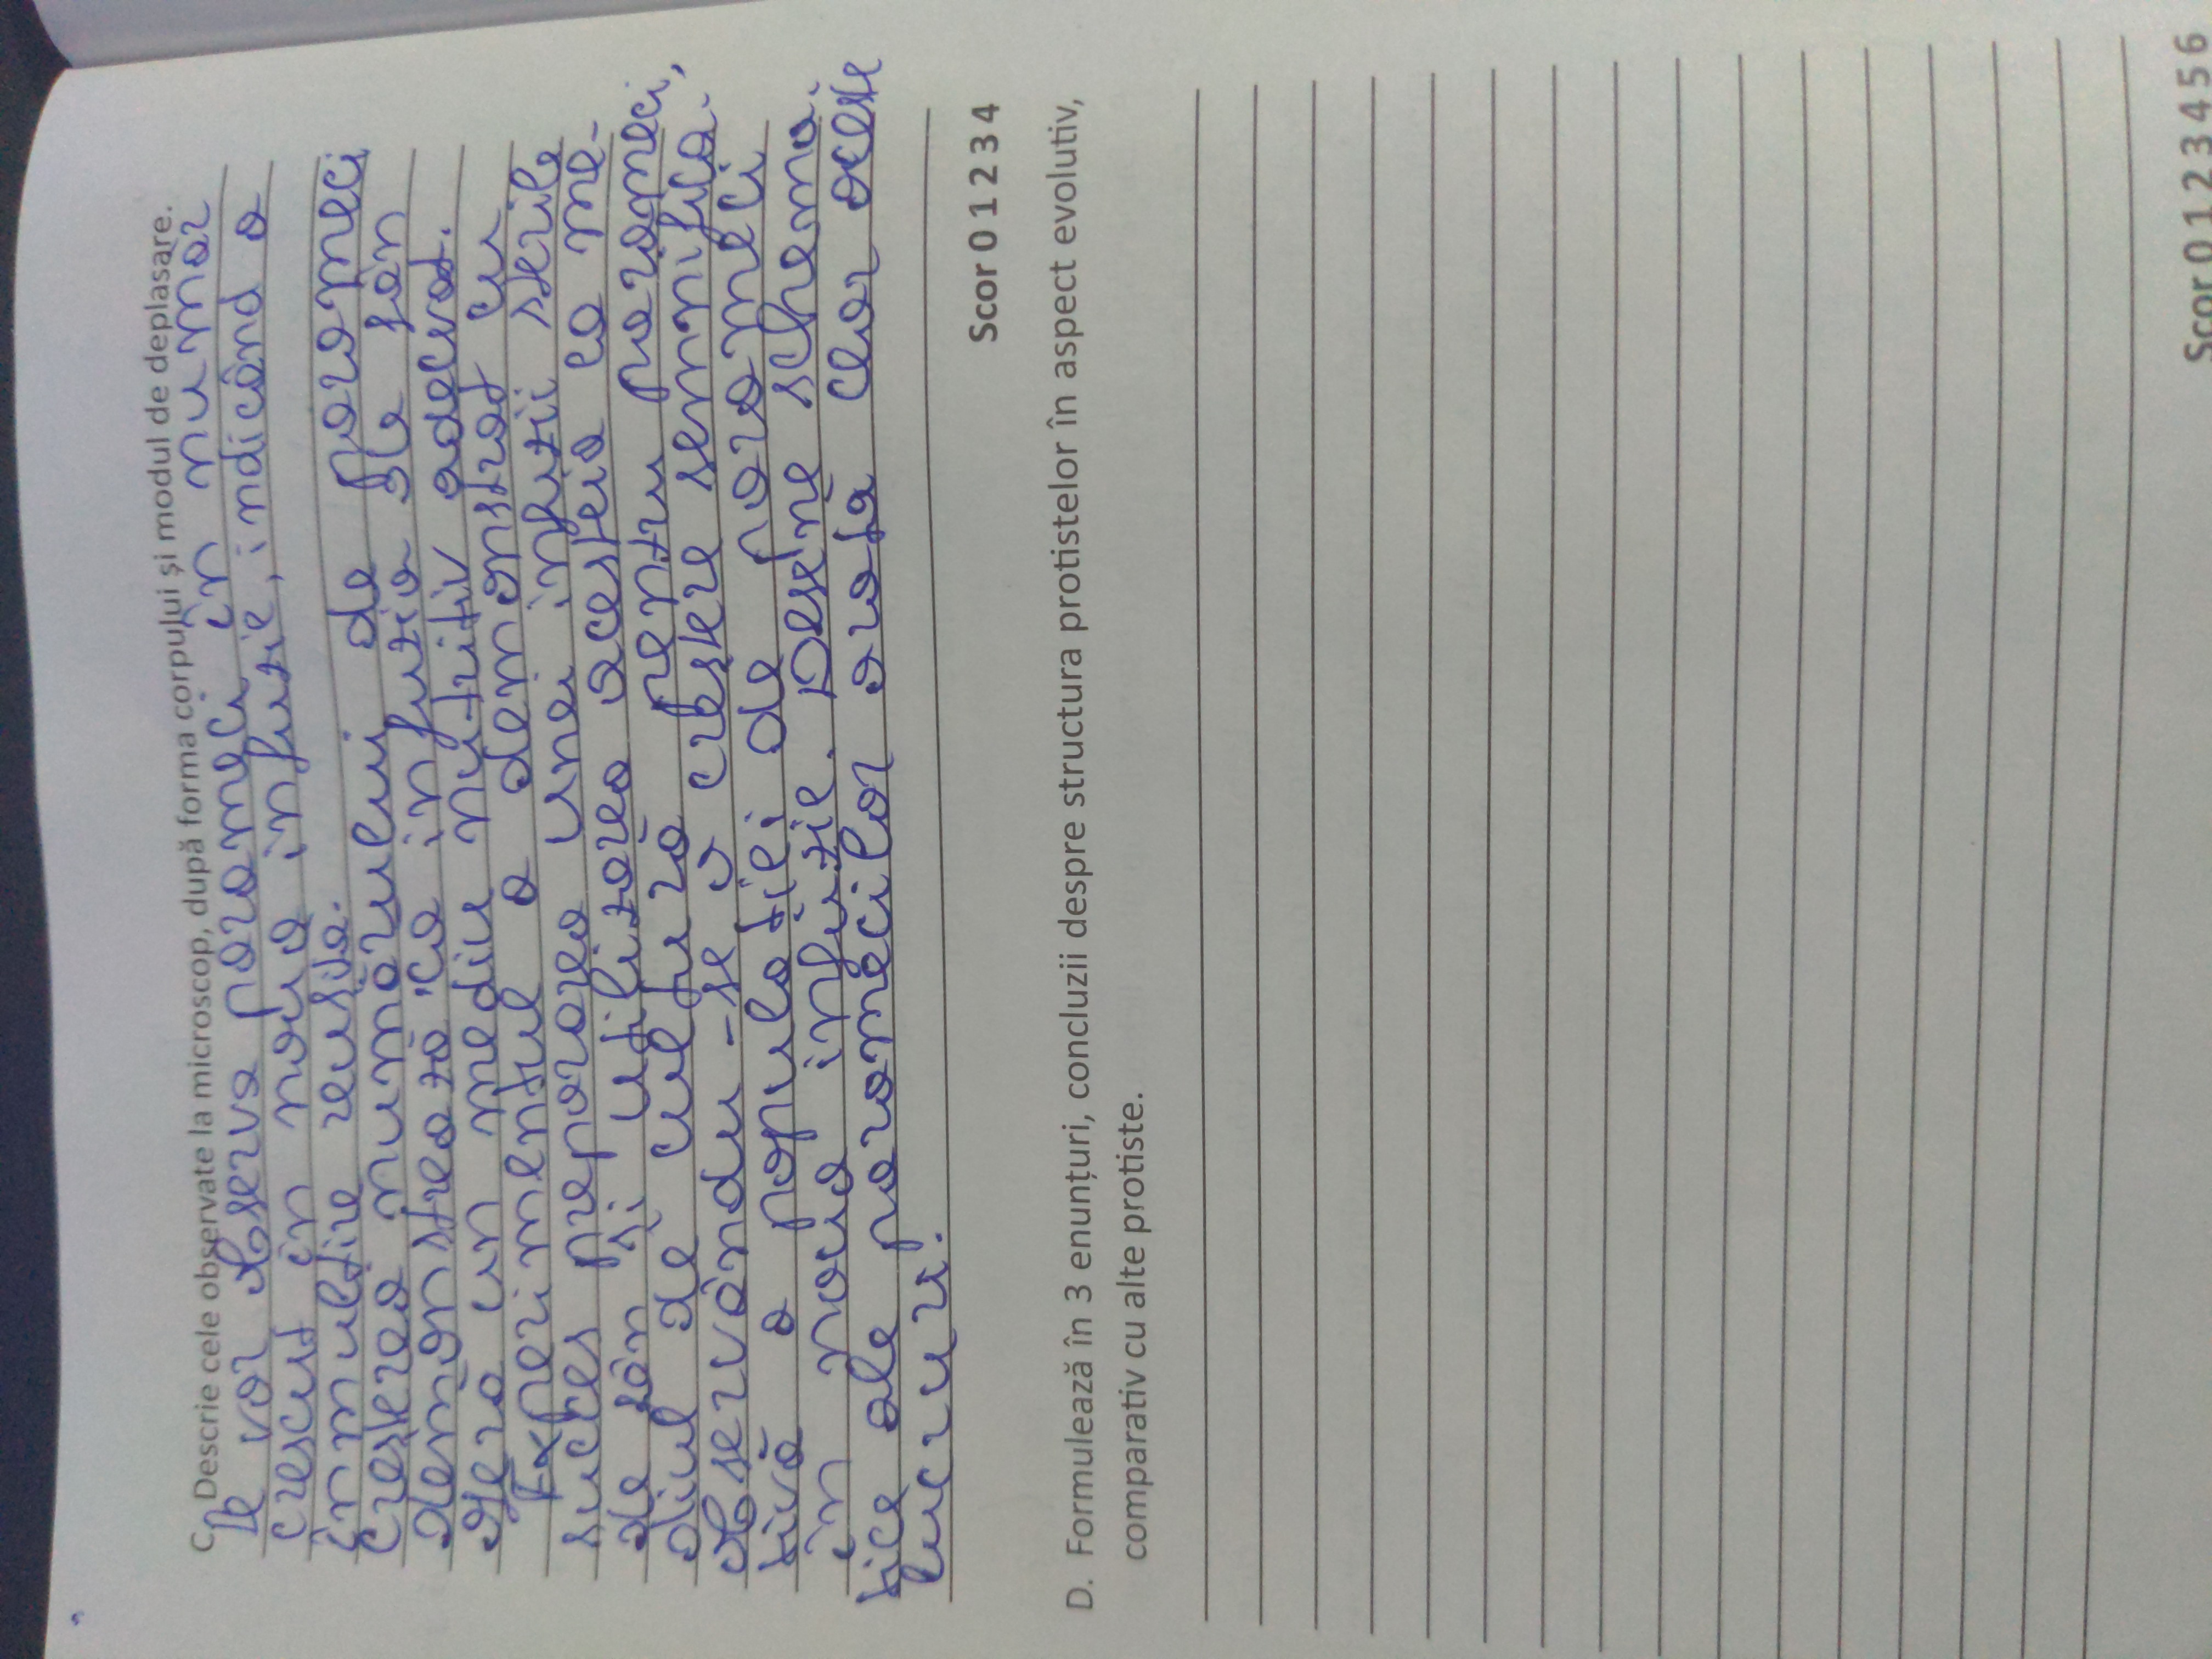 C. Descrie cele observate la microscop, după forma corpului și modul de deplasare.
Se vor observa parameci în număr
crescut în noua infuzie, indicând o
înmulțire reușita.
Creșterea numărului de parameci
demonstrează ca infuzia de fân
oferă un mediu nutritiv adecvat.
Experimentul a demonstrat cu
succes prepararea unei infuzii sterile
de fân și utilizarea acesteia ca me-
diul de cultură pentru parameci,
observându-se o creștere semnifica-
tivă a populației de parameci
în noua infuzie. Desene schema-
tice ale paramecilor arată clar aceste
lucruri.
Scor 0 1 2 3 4
D. Formulează în 3 enunțuri, concluzii despre structura protistelor în aspect evolutiv,
comparativ cu alte protiste.
Scor 0 1 2 3 4 5 6